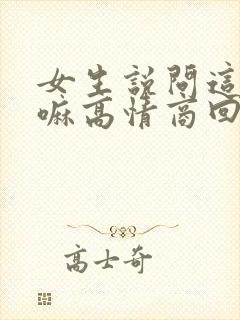 女生說問這
嘛高情商回
高士奇